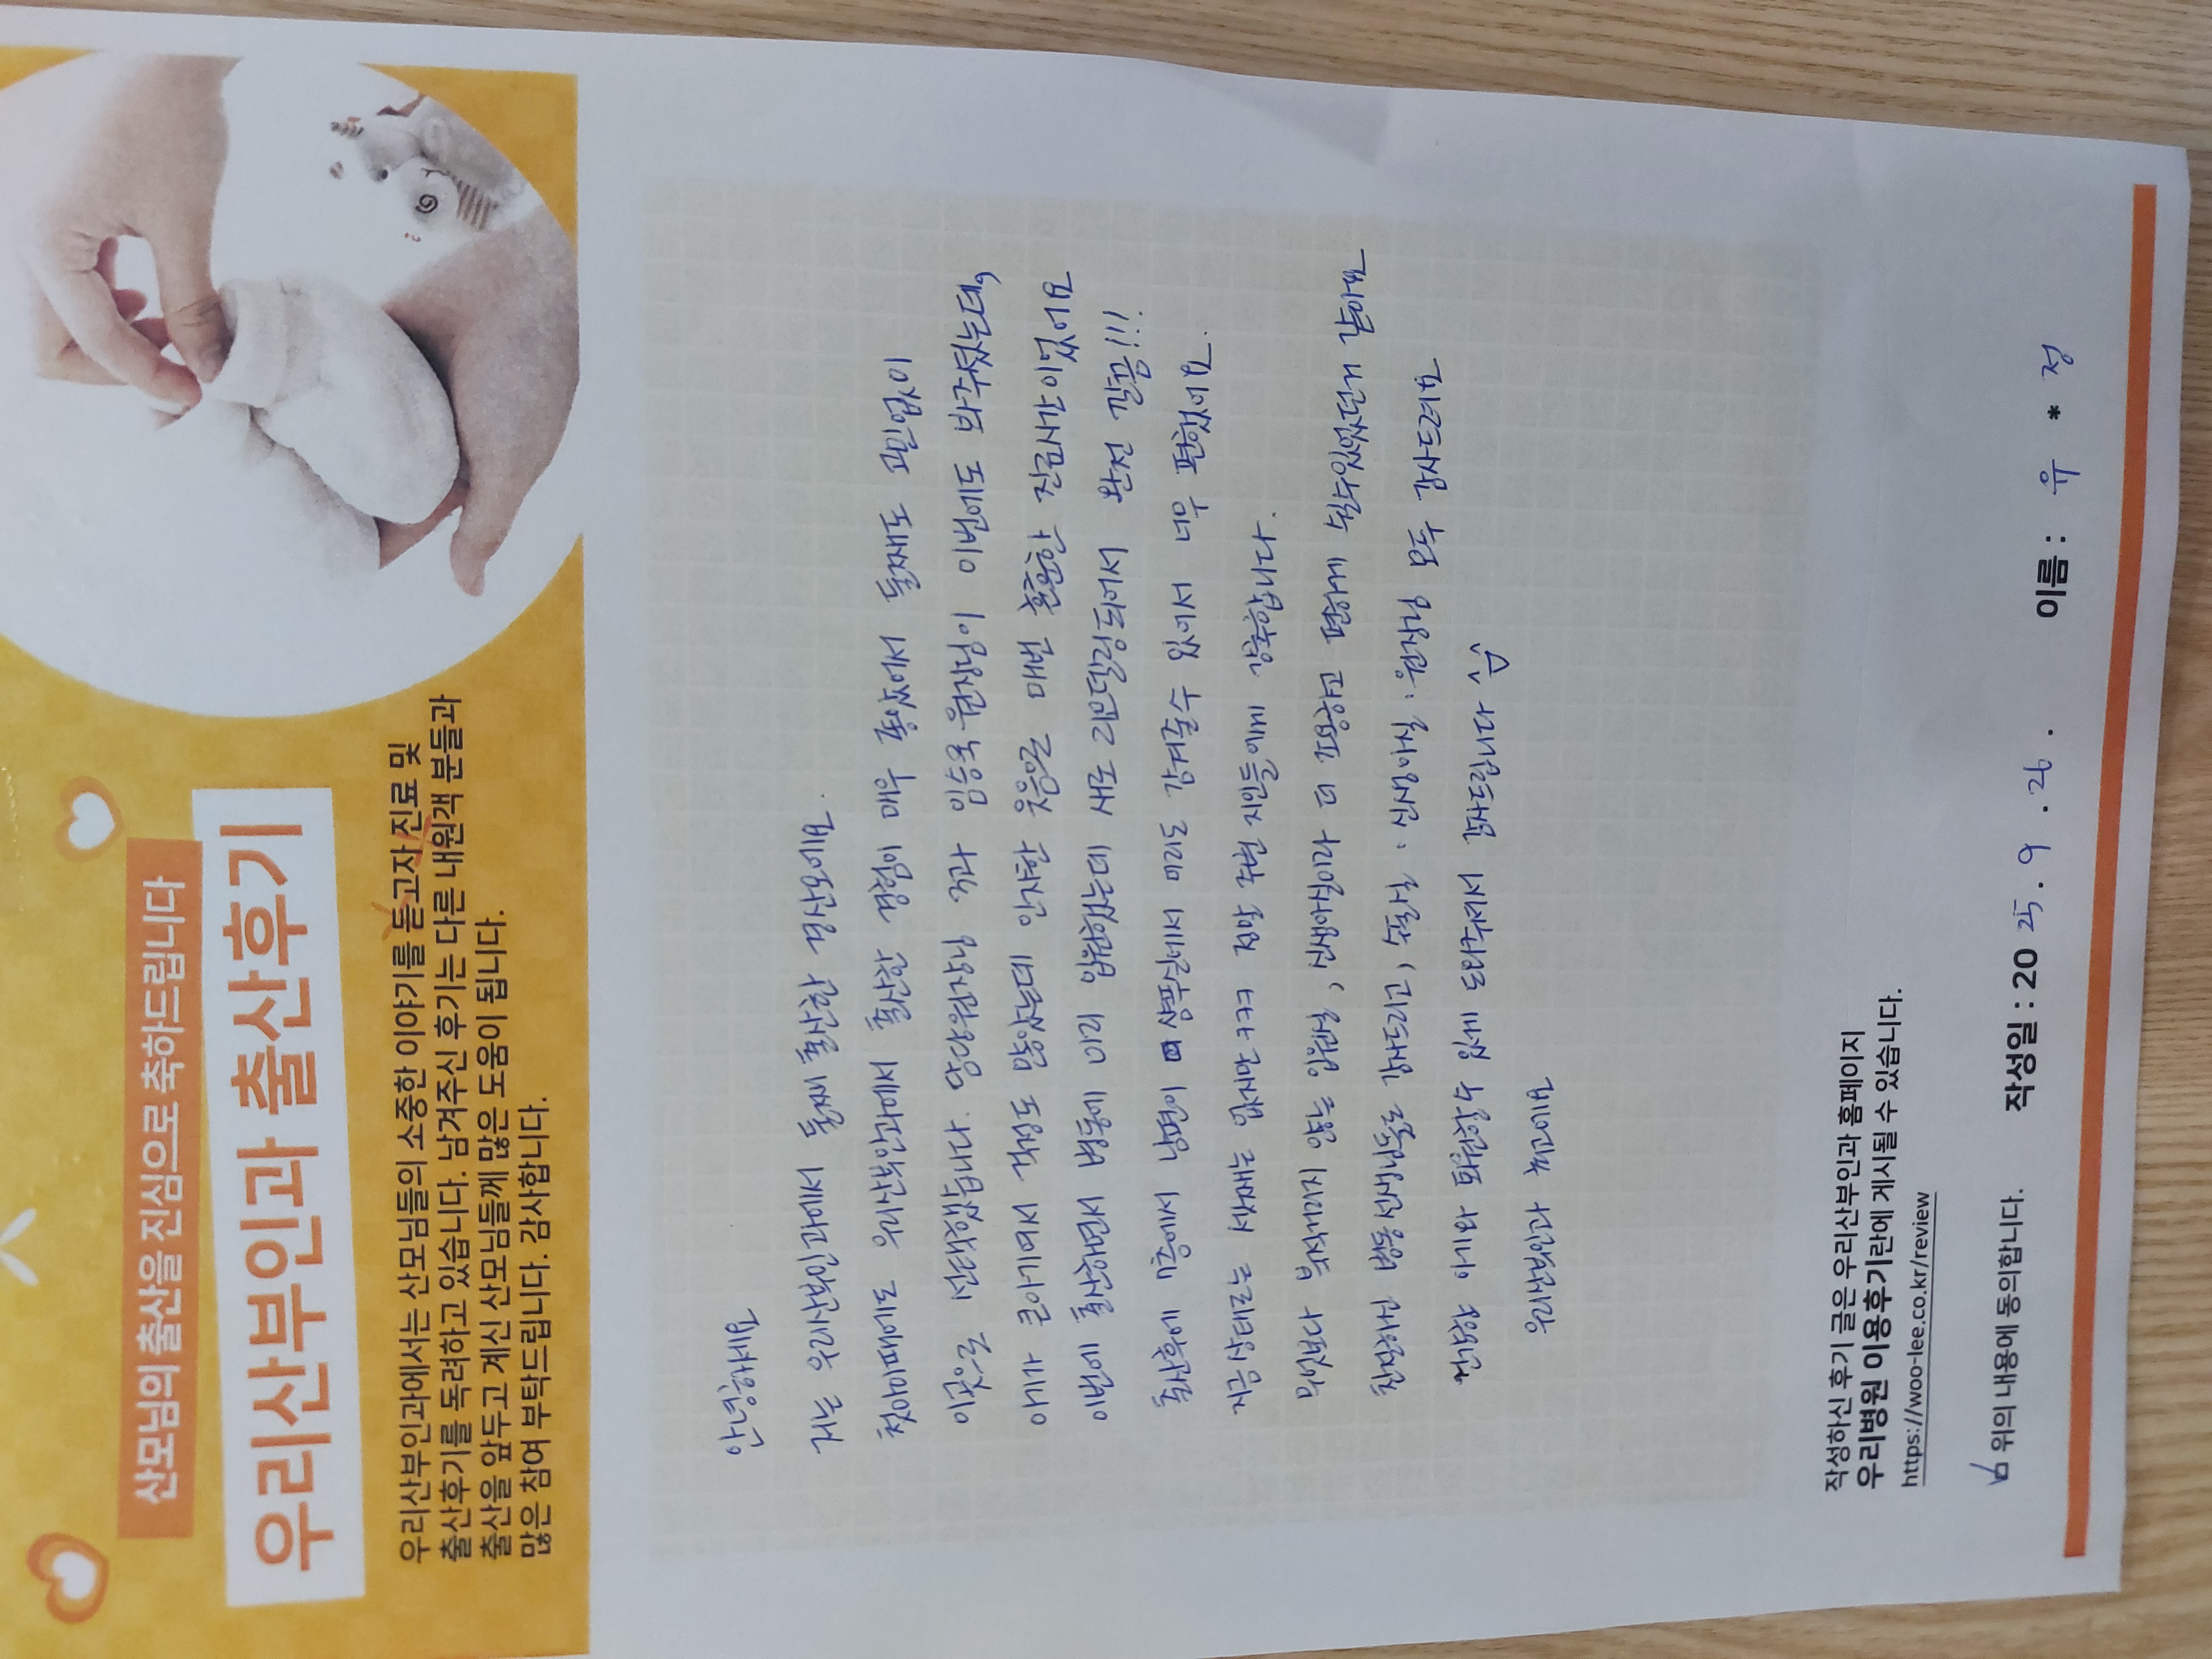 산모님의 출산을 진심으로 축하드립니다
우리산부인과 출산후기
우리산부인과에서는 산모님들의 소중한 이야기를 듣고자 진료 및
출산후기를 독려하고 있습니다. 남겨주신 후기는 다른 내원객 분들과
출산을 앞두고 계신 산모님들께 많은 도움이 됩니다.
많은 참여 부탁드립니다. 감사합니다.
안녕하세요
저는 우리산부인과에서 둘째 출산한 경산모에요.
첫아이때에도 우리산부인과에서 출산한 경험이 매우 좋았어서 둘째도 고민없이
이곳을 선택했습니다. 담당원장님 과 임승옥원장님이 이번에도 봐주셨는데,
아기가 큰아기여서 걱정도 많았는데 인자한 웃음으로 매번 훈훈한 진료시간이었어요
이번에 출산하면서 병동에 미리 입원했었는데 새로 리모델링되어서 완전 깔끔!!!
출산후에 7층에서 남편이 샴푸실에서 머리도 감겨줄수 있어서 너무 편했어요.
지금상태로는 셋째는 없지만 ㅋㅋㅋ 만약 주변 지인들에게 강추합니다.
무엇보다 복작거리지 않는 입원실, 신생아실이라 더 조용하고 편하게 있을수있었던거 같아요
친절하신 병동선생님들도 감사드리고, 수술실 · 신생아실 · 원장님 모두 감사드려요
건강한 아기와 퇴원할 수 있게 도와주셔서 감사드립니다 ^^
우리산부인과 최고에요
작성하신 후기 글은 우리산부인과 홈페이지
우리병원 이용후기란에 게시될 수 있습니다.
https://woo-lee.co.kr/review
위의 내용에 동의합니다. 작성일 : 2025. 9. 26. 이름 : 유 * 정